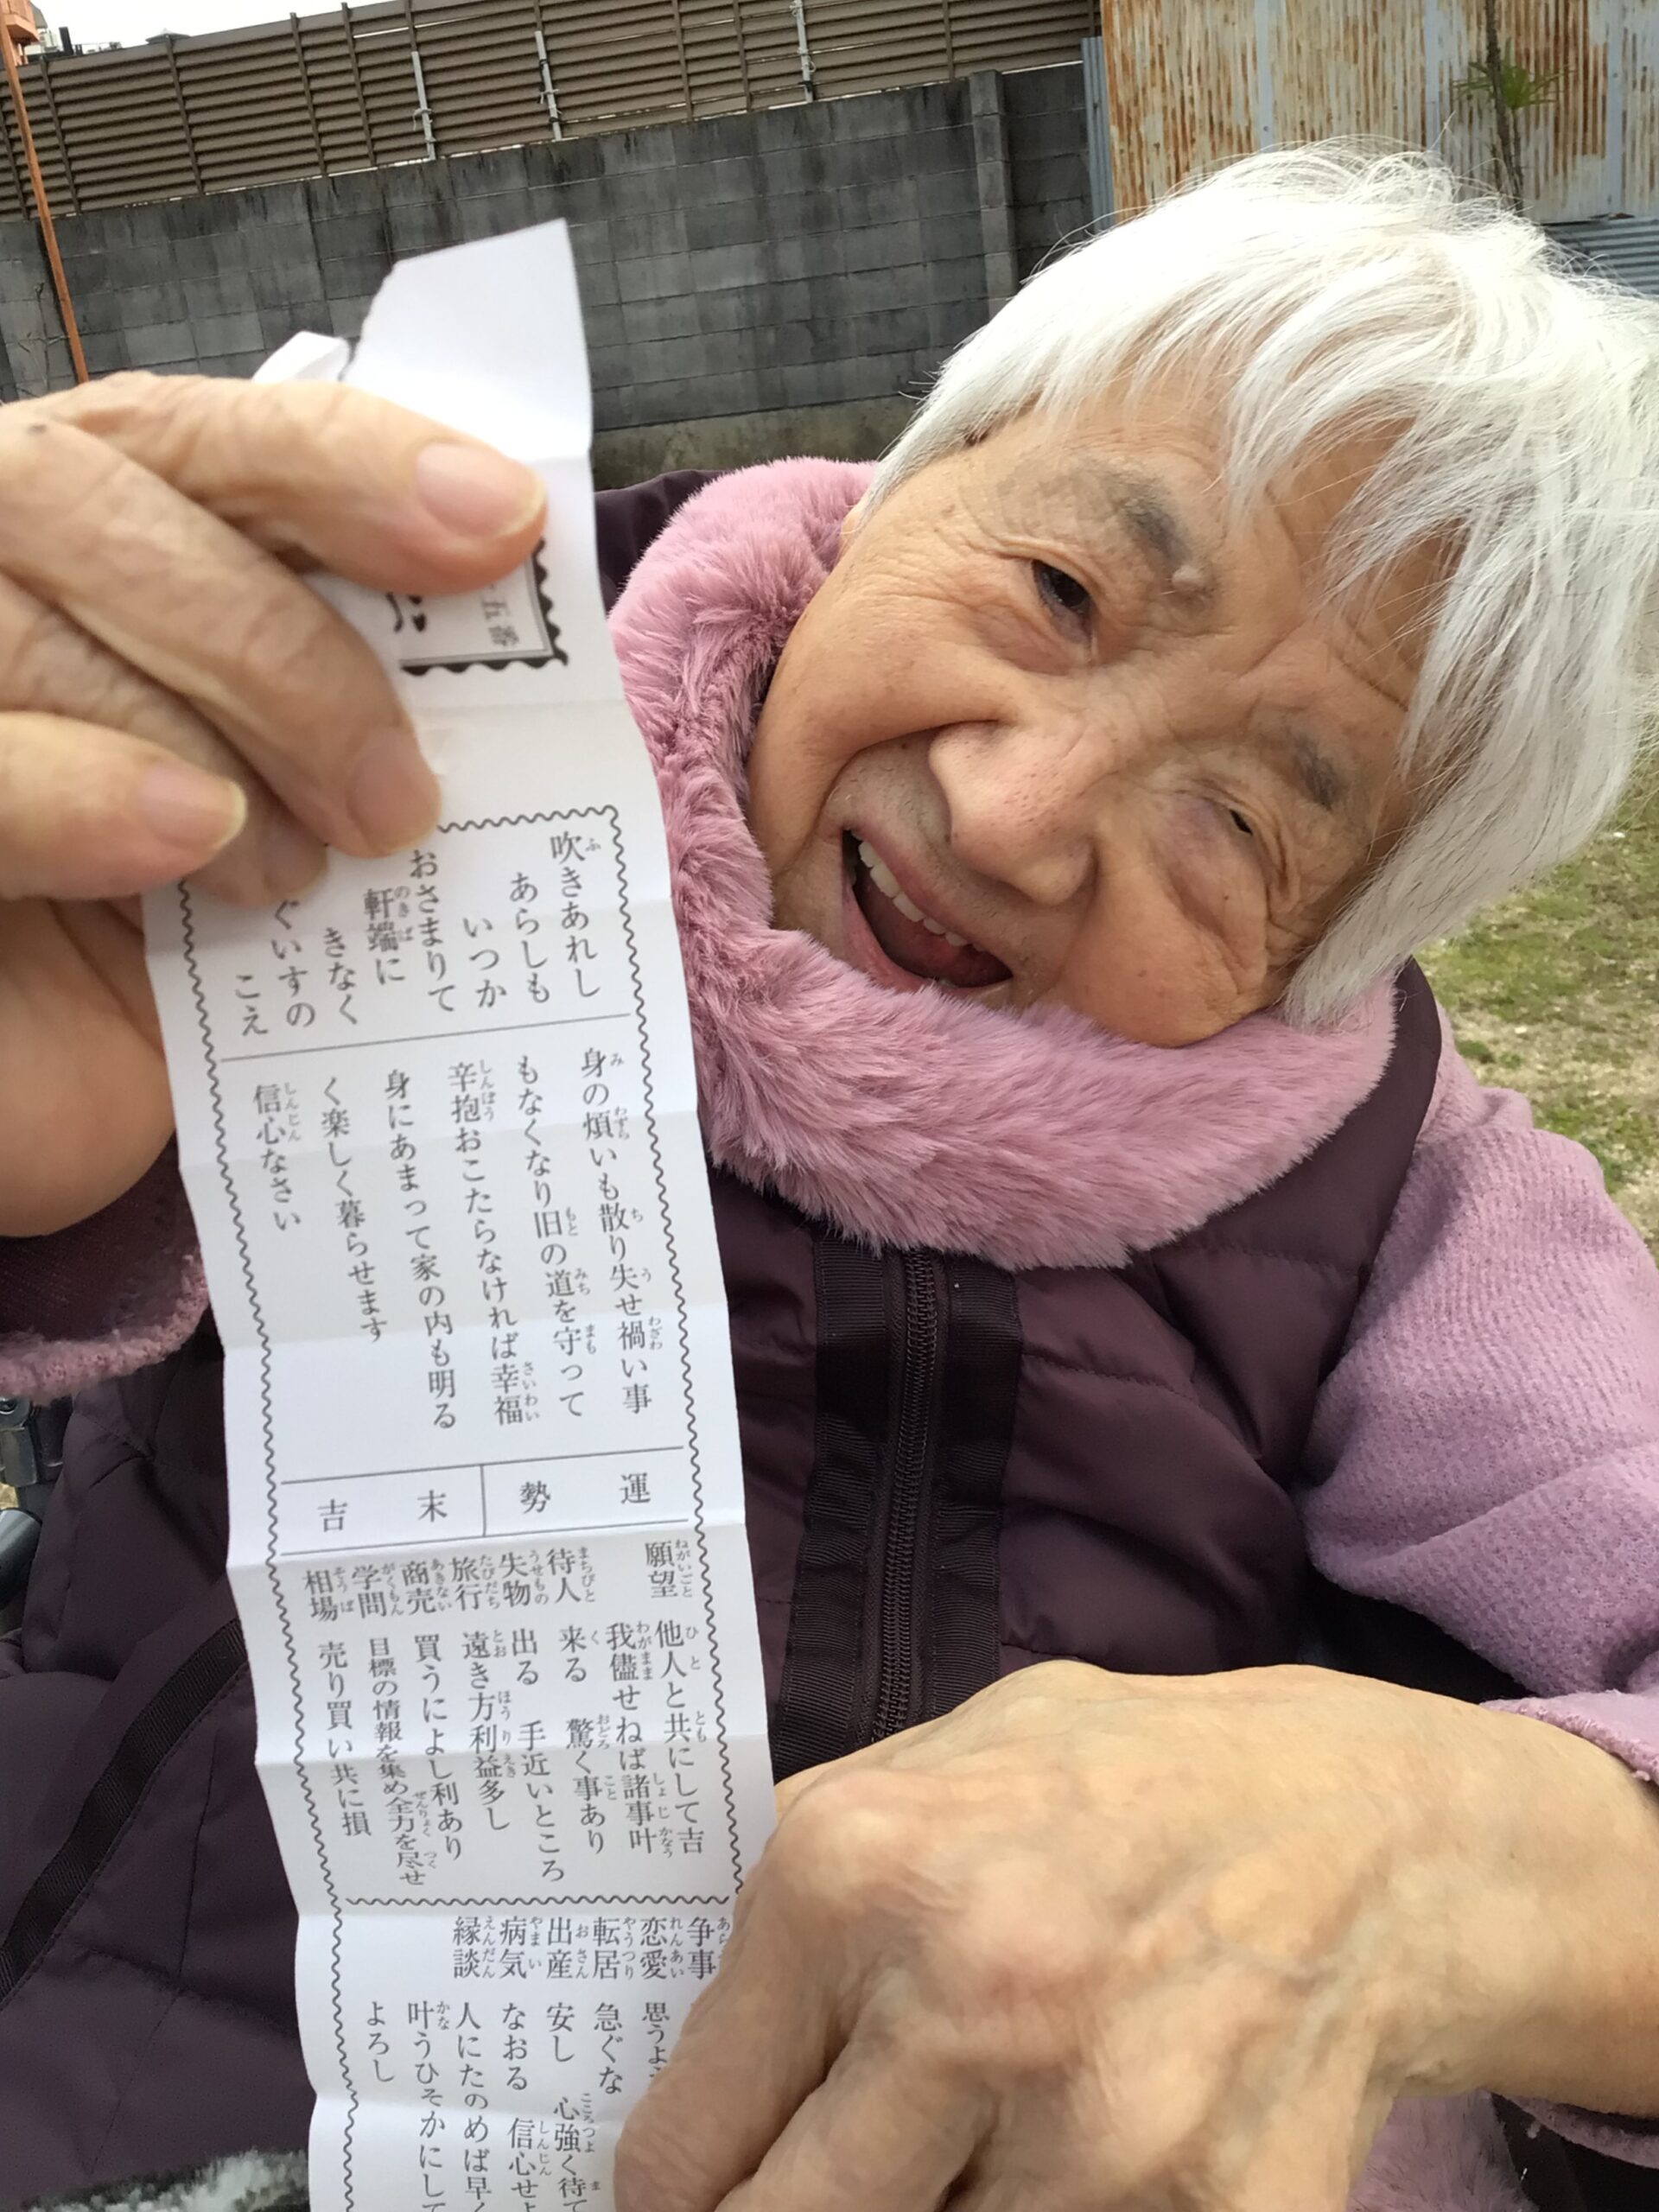 五番
吹きあれし
あらしも
いつか
おさまりて
軒端に
きなく
ぐいすの
こえ
身の煩いも散り失せ禍い事
もなくなり旧の道を守って
辛抱おこたらなければ幸福
身にあまって家の内も明る
く楽しく暮らせます
信心なさい
運勢
末吉
願望 他人と共にして吉
我儘せねば諸事叶
待人 来る 驚く事あり
失物 出る 手近いところ
旅行 遠き方利益多し
商売 買うによし利あり
学問 目標の情報を集め全力を尽せ
相場 売り買い共に損
争事
恋愛 思うよ
転居 急ぐな
出産 安し 心強く待て
病気 なおる 信心せよ
縁談 人にたのめば早く
叶うひそかにして
よろし